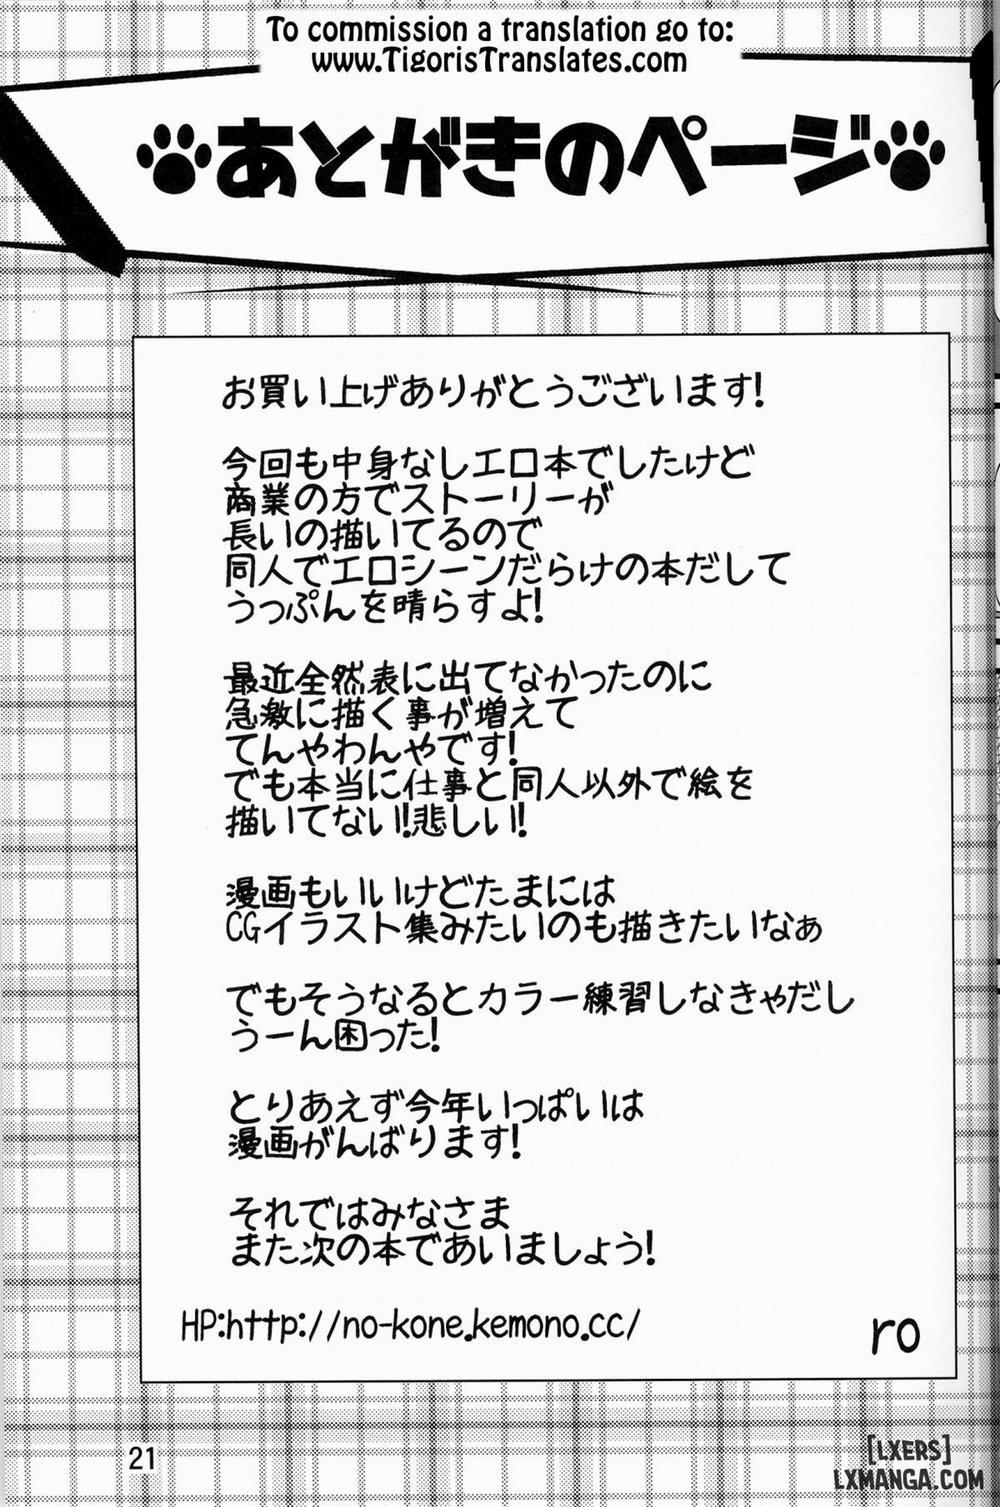 To commission a translation go to:
www.TigorisTranslates.com
あとがきのページ
お買い上げありがとうございます!
今回も中身なしエロ本でしたけど
商業の方でストーリーが
長いの描いてるので
同人でエロシーンだらけの本だして
うっぷんを晴らすよ!
最近全然表に出てなかったのに
急激に描く事が増えて
てんやわんやです!
でも本当に仕事と同人以外で絵を
描いてない!悲しい!
漫画もいいけどたまには
CGイラスト集みたいのも描きたいなぁ
でもそうなるとカラー練習しなきゃだし
うーん困った!
とりあえず今年いっぱいは
漫画がんばります!
それではみなさま
また次の本であいましょう!
HP:http://no-kone.kemono.cc/
ro
21
[LXERS]
LXMANGA.COM